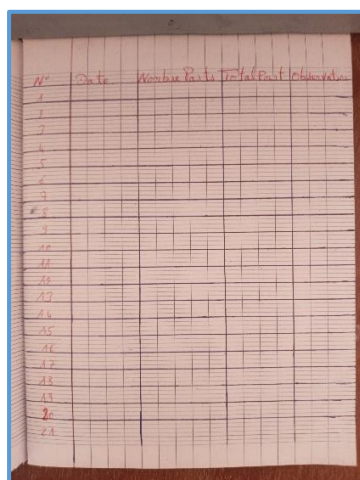 N° Date Nombre Parts Total Part Observation
1
2
3
4
5
6
7
8
9
10
11
12
13
14
15
16
17
18
19
20
21